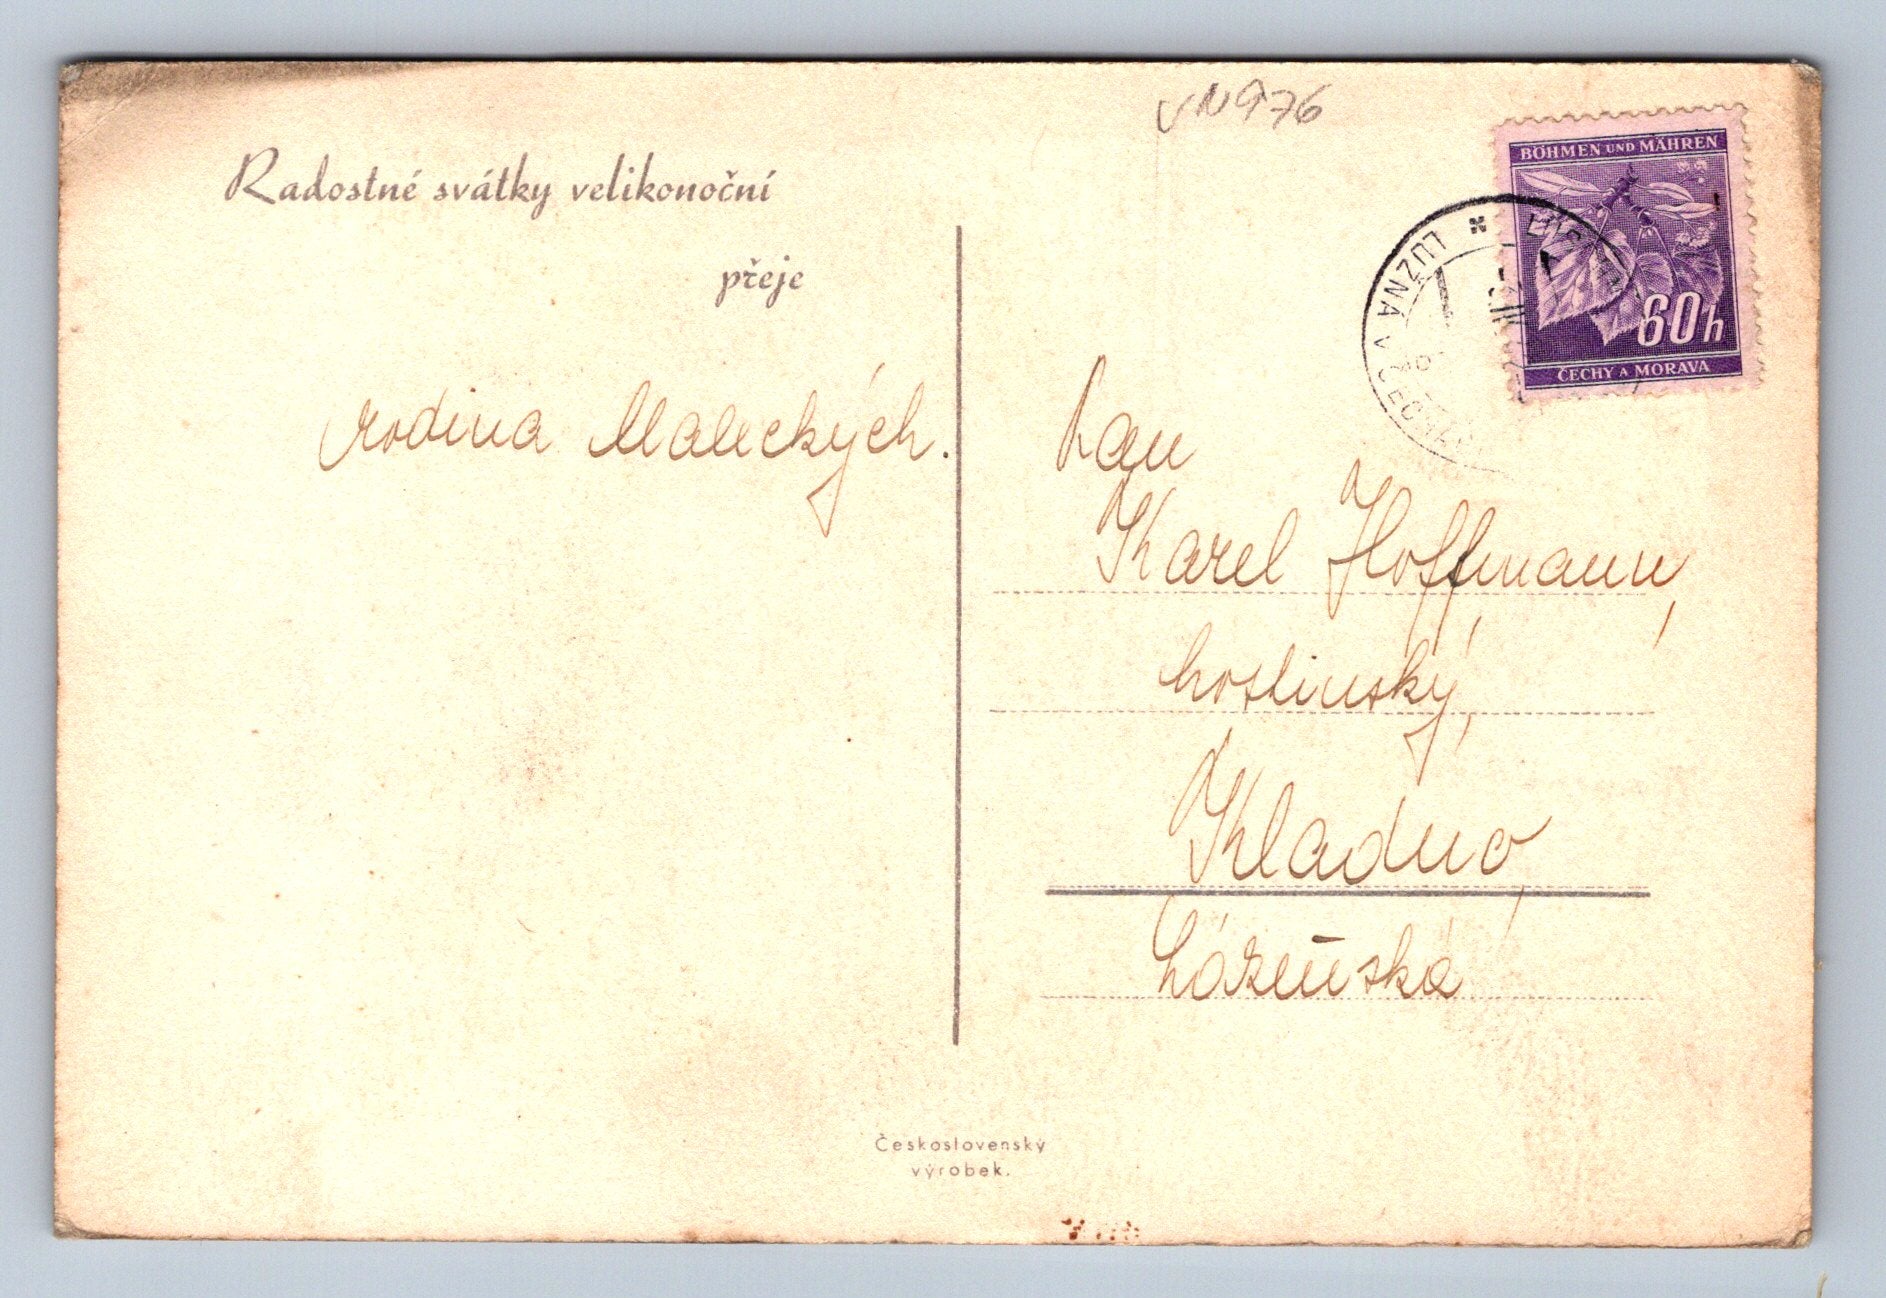 VN976
Radostné svátky velikonoční
přeje
rodina Maleckých.
BÖHMEN UND MÄHREN
60h
ČECHY A MORAVA
LUŽNÁ
Pan
Karel Hoffmann,
hostinský,
Kladno,
Lázeňská
Československý
výrobek.